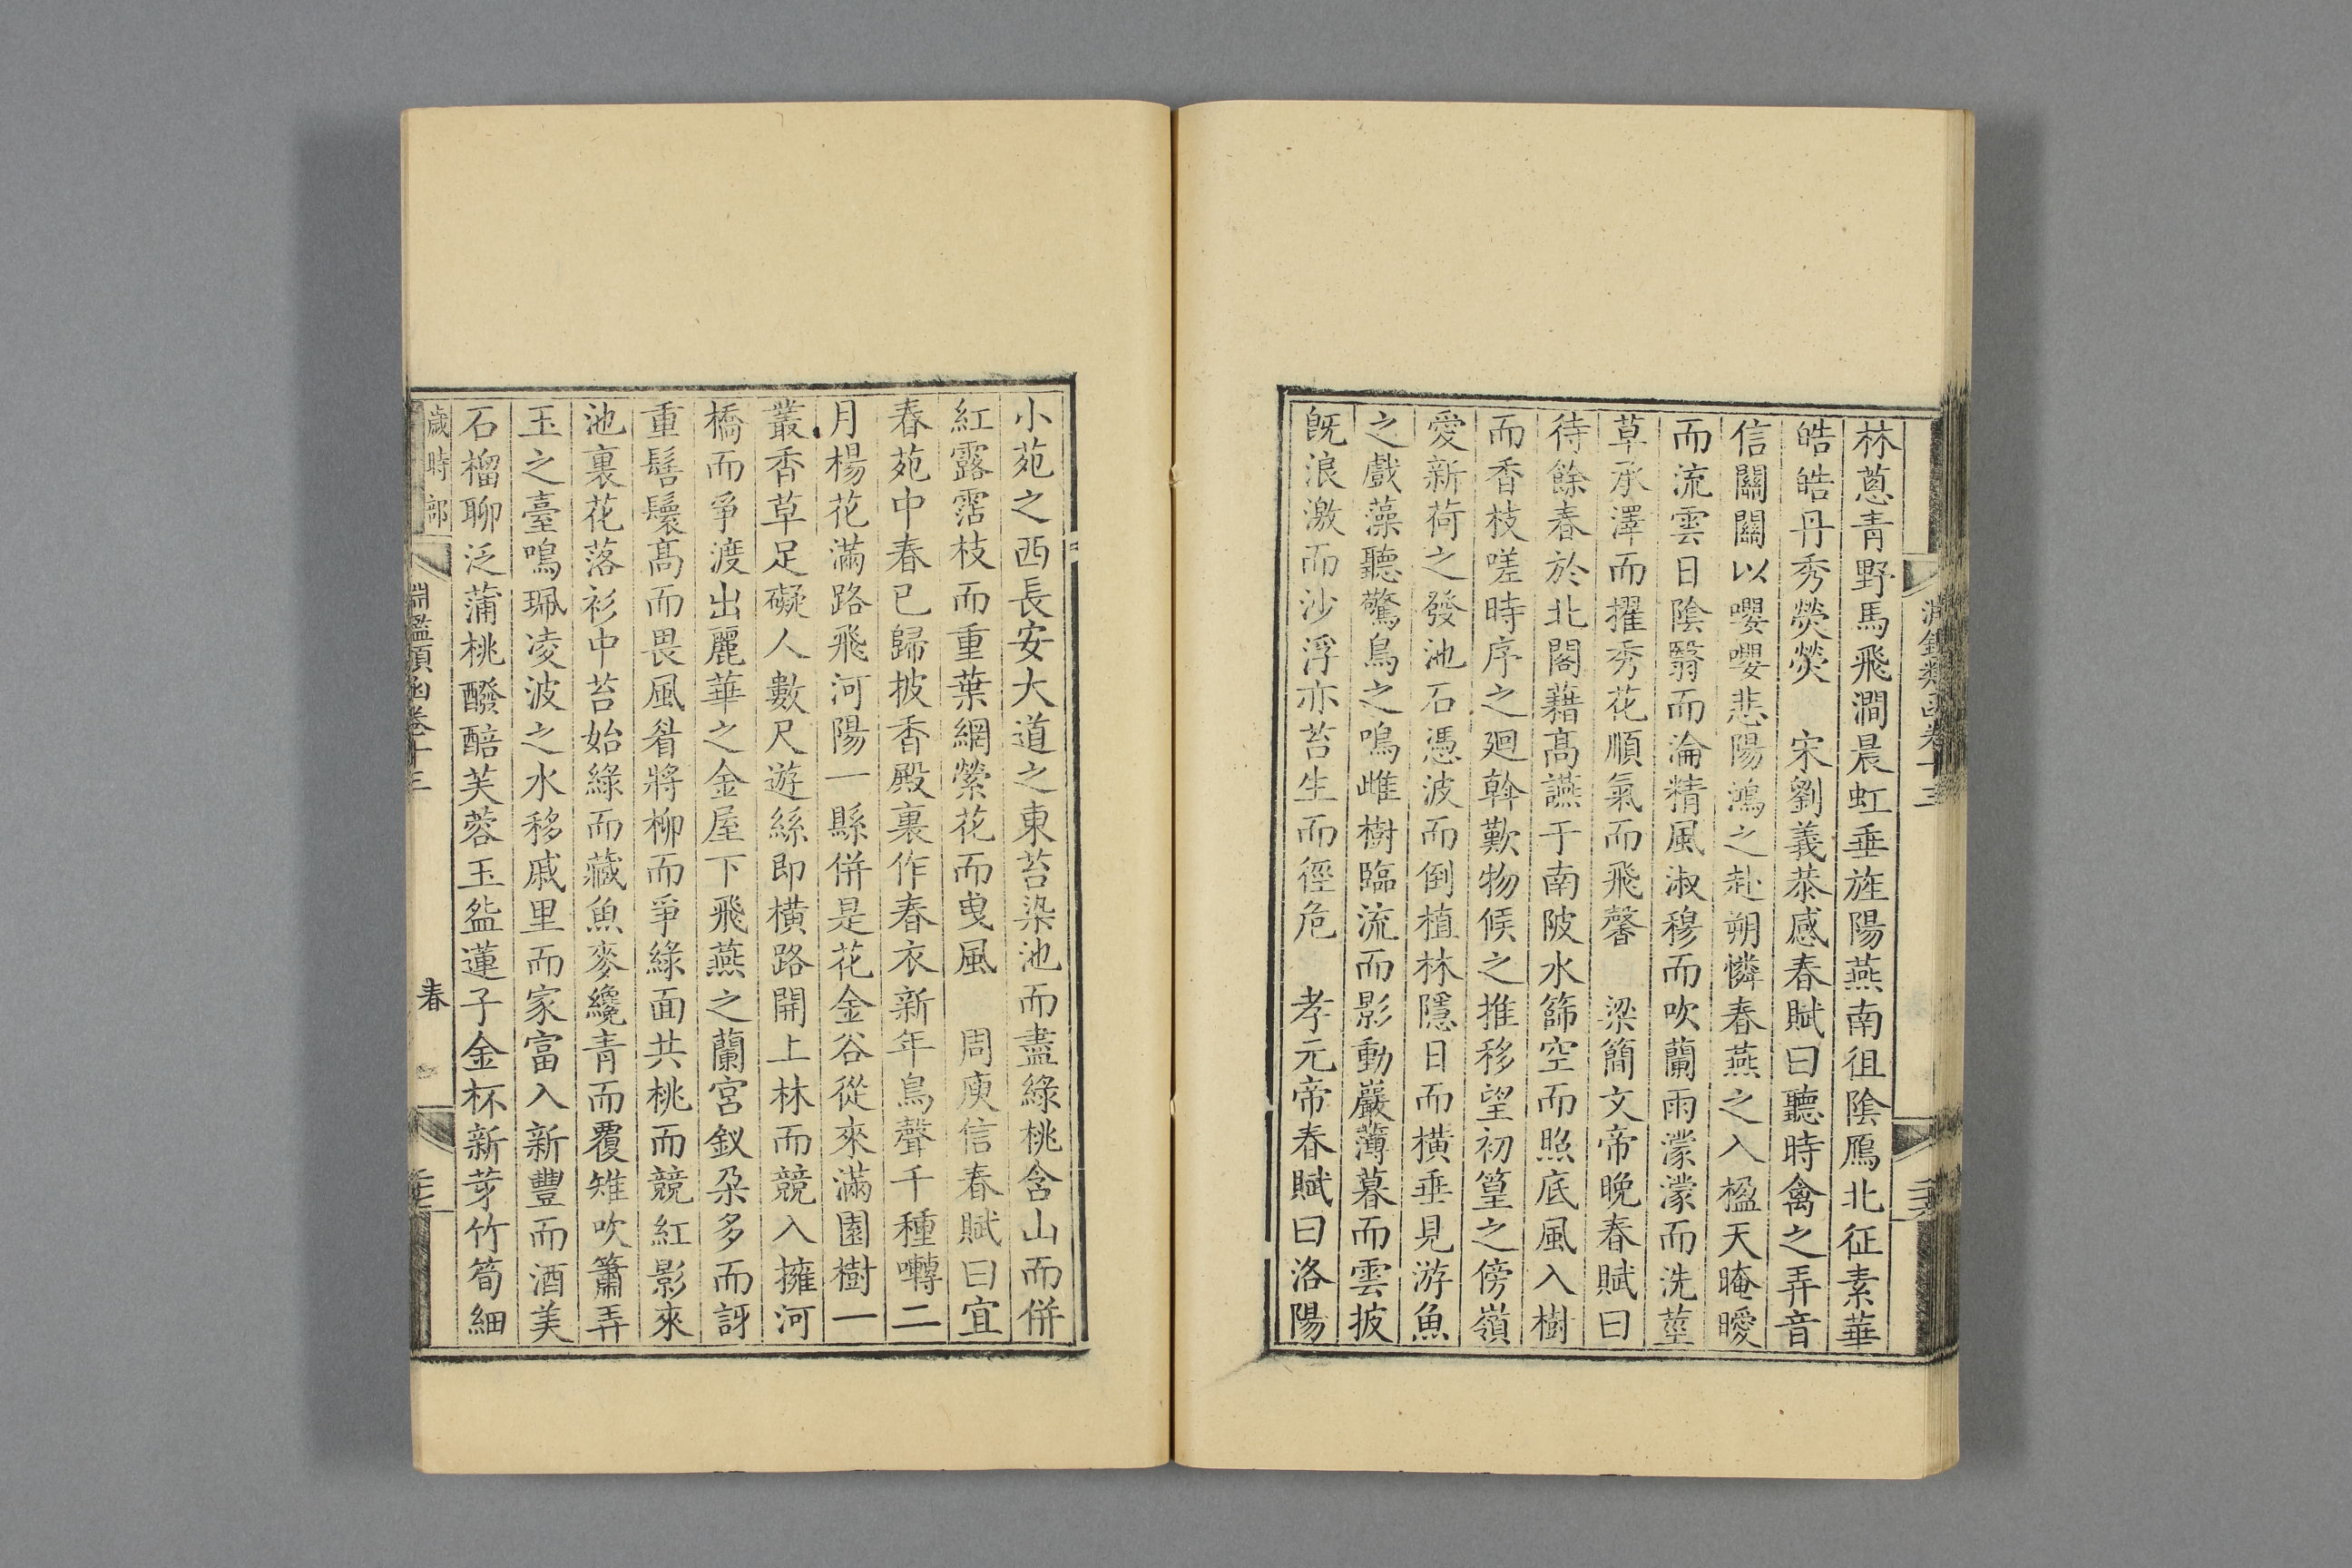 淵鑑類函卷十三
林蔥青野馬飛澗晨虹垂旌陽燕南徂陰鴈北征素華
皓皓丹秀熒熒　宋劉義恭感春賦曰聽時禽之弄音
信關關以嚶嚶悲陽鴻之赴朔憐春燕之入楹天晻曖
而流雲日陰翳而淪精風淑穆而吹蘭雨濛濛而洗莖
草承澤而擢秀花順氣而飛馨　梁簡文帝晚春賦曰
待餘春於北閣藉髙讌于南陂水篩空而照底風入樹
而香枝嗟時序之廻斡歎物候之推移望初篁之傍嶺
愛新荷之發池石憑波而倒植林隱日而橫垂見游魚
之戲藻聽驚鳥之鳴雌樹臨流而影動巖薄暮而雲披
既浪激而沙浮亦苔生而徑危　孝元帝春賦曰洛陽
小苑之西長安大道之東苔染池而盡綠桃含山而併
紅露霑枝而重葉網縈花而曵風　周庾信春賦曰宜
春苑中春已歸披香殿裏作春衣新年鳥聲千種囀二
月楊花滿路飛河陽一縣併是花金谷從來滿園樹一
叢香草足礙人數尺遊絲即橫路開上林而競入擁河
橋而爭渡出麗華之金屋下飛燕之蘭宮釵朶多而訝
重髻鬟髙而畏風眉將柳而爭綠面共桃而競紅影來
池裏花落衫中苔始綠而藏魚麥纔青而覆雉吹簫弄
玉之臺鳴珮凌波之水移戚里而家富入新豐而酒美
石榴聊泛蒲桃醱醅芙蓉玉盌蓮子金杯新芽竹筍細
歲時部
淵鑑類函卷十三
春